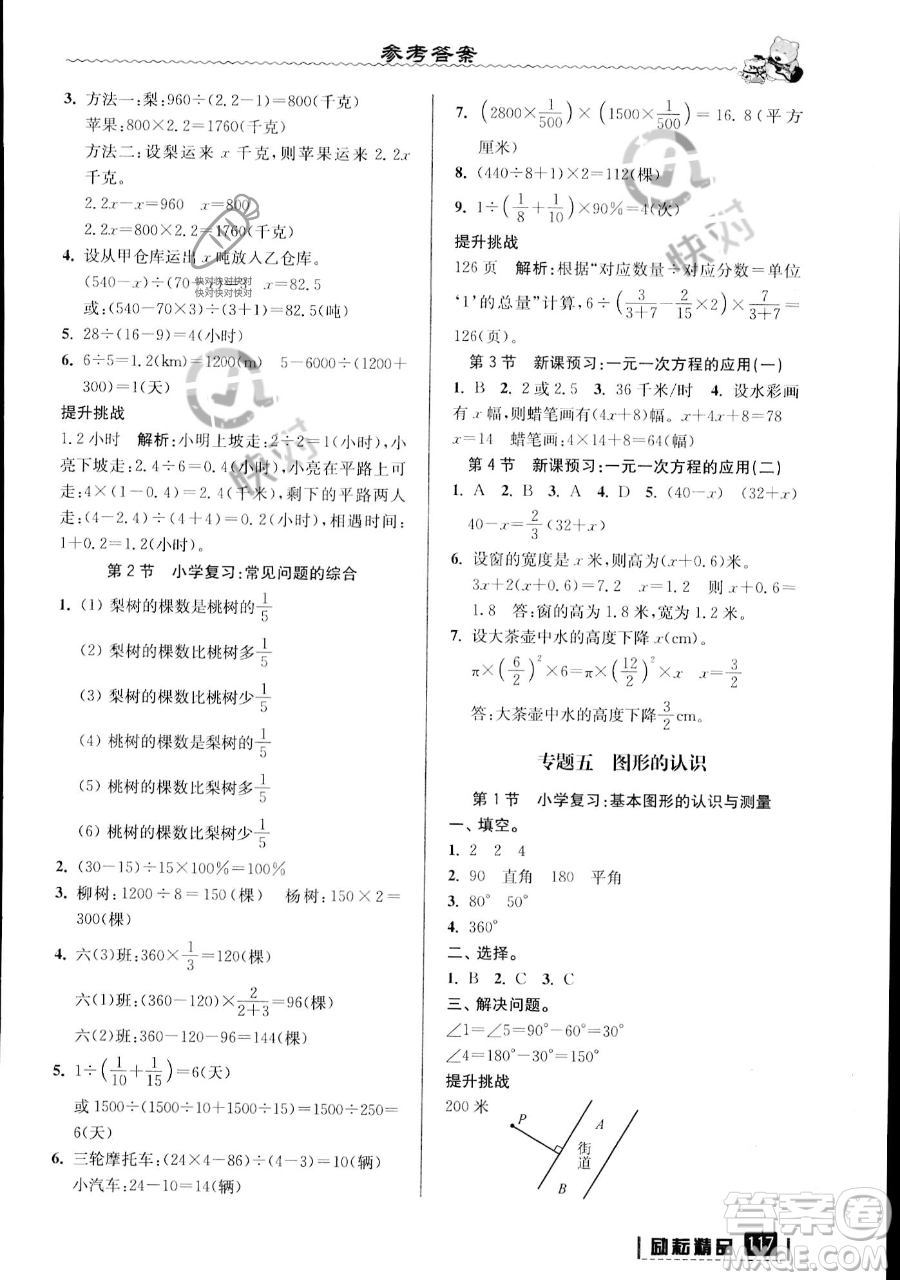 参考答案
3. 方法一:梨:960÷(2.2-1)=800(千克)
苹果:800×2.2=1760(千克)
方法二:设梨运来 x 千克,则苹果运来 2.2x
千克。
2.2x-x=960 x=800
2.2x=800×2.2=1760(千克)
4. 设从甲仓库运出 x 吨放入乙仓库。
(540-x)÷(70+x)=3 x=82.5
快对快对快对
快对快对快对
或:(540-70×3)÷(3+1)=82.5(吨)
5. 28÷(16-9)=4(小时)
6. 6÷5=1.2(km)=1200(m) 5-6000÷(1200+
300)=1(天)
提升挑战
1.2小时 解析:小明上坡走:2÷2=1(小时),小
亮下坡走:2.4÷6=0.4(小时),小亮在平路上可
走:4×(1-0.4)=2.4(千米),剩下的平路两人
走:(4-2.4)÷(4+4)=0.2(小时),相遇时间:
1+0.2=1.2(小时)。
第2节 小学复习:常见问题的综合
1. (1) 梨树的棵数是桃树的1/5
(2) 梨树的棵数比桃树多1/5
(3) 梨树的棵数比桃树少1/5
(4) 桃树的棵数是梨树的1/5
(5) 桃树的棵数比梨树多1/5
(6) 桃树的棵数比梨树少1/5
2. (30-15)÷15×100%=100%
3. 柳树:1200÷8=150(棵) 杨树:150×2=
300(棵)
4. 六(3)班:360×1/3=120(棵)
六(1)班:(360-120)×2/(2+3)=96(棵)
六(2)班:360-120-96=144(棵)
5. 1÷(1/10+1/15)=6(天)
或 1500÷(1500÷10+1500÷15)=1500÷250=
6(天)
6. 三轮摩托车:(24×4-86)÷(4-3)=10(辆)
小汽车:24-10=14(辆)
7. (2800×1/500)×(1500×1/500)=16.8(平方
厘米)
8. (440÷8+1)×2=112(棵)
9. 1÷(1/8+1/10)×90%=4(次)
提升挑战
126页 解析:根据“对应数量÷对应分数=单位
‘1’的总量”计算,6÷(3/(3+7)-2/(5+2)×2)×7/(3+7)=
126(页)。
第3节 新课预习:一元一次方程的应用(一)
1. B 2. 2或2.5 3. 36千米/时 4. 设水彩画
有 x 幅,则蜡笔画有(4x+8)幅。x+4x+8=78
x=14 蜡笔画:4×14+8=64(幅)
第4节 新课预习:一元一次方程的应用(二)
1. A 2. B 3. A 4. D 5. (40-x) (32+x)
40-x=2/3(32+x)
6. 设窗的宽度是 x 米,则高为(x+0.6)米。
3x+2(x+0.6)=7.2 x=1.2 x+0.6=
1.8 答:窗的高为1.8米,宽为1.2米。
7. 设大茶壶中水的高度下降 x(cm)。
π×(6/2)²×6=π×(12/2)²×x x=3/2
答:大茶壶中水的高度下降3/2cm。
专题五 图形的认识
第1节 小学复习:基本图形的认识与测量
一、填空。
1. 2 2 4
2. 90 直角 180 平角
3. 80° 50°
4. 360°
二、选择。
1. B 2. C 3. C
三、解决问题。
∠1=∠5=90°-60°=30°
∠4=180°-30°=150°
提升挑战
200米
P
A
街道
B
快对
快对
励耘精品 117
答案圈